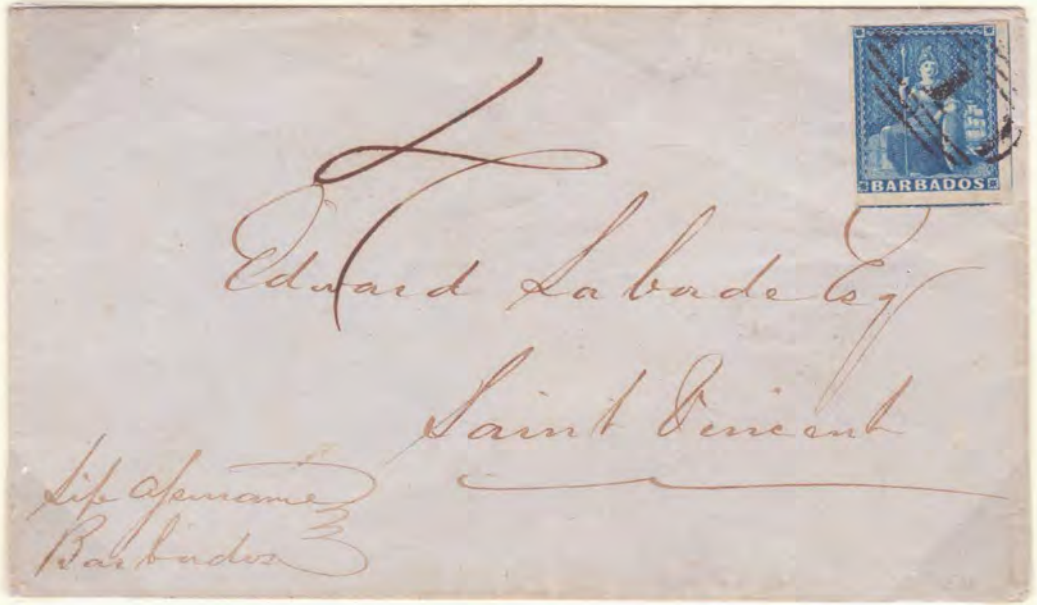 BARBADOS
4
Edward Labode Esq
Saint Vincent
Life Assurance
Barbados